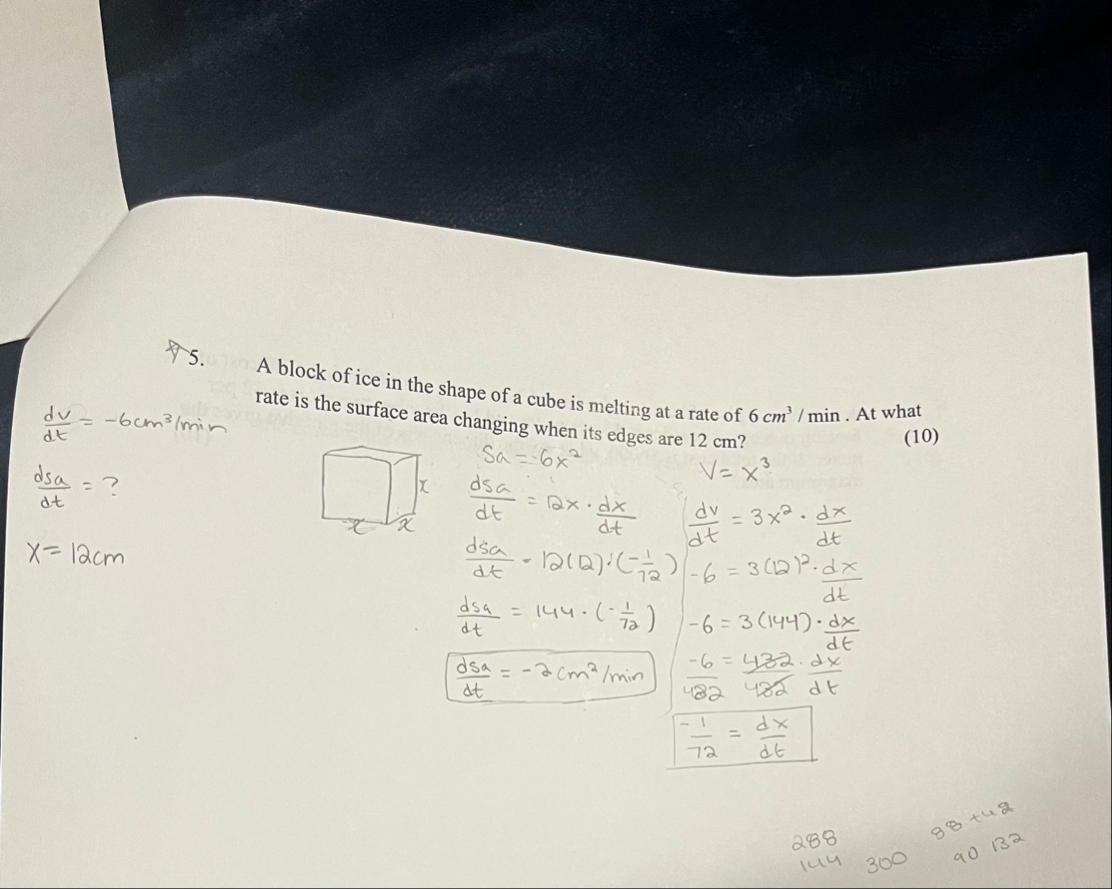 5. A block of ice in the shape of a cube is melting at a rate of 6 cm³ / min . At what
rate is the surface area changing when its edges are 12 cm?
(10)
dv/dt = -6cm³/min
dsa/dt = ?
x = 12cm
x
x x
Sa = 6x²
dsa/dt = 12x · dx/dt
dsa/dt = 12(12) · (-1/72)
dsa/dt = 144 · (-1/72)
dsa/dt = -2cm²/min
V = x³
dv/dt = 3x² · dx/dt
-6 = 3(12)² · dx/dt
-6 = 3(144) · dx/dt
-6/432 = 432/432 · dx/dt
-1/72 = dx/dt
288
144 300
88 +42
90 132